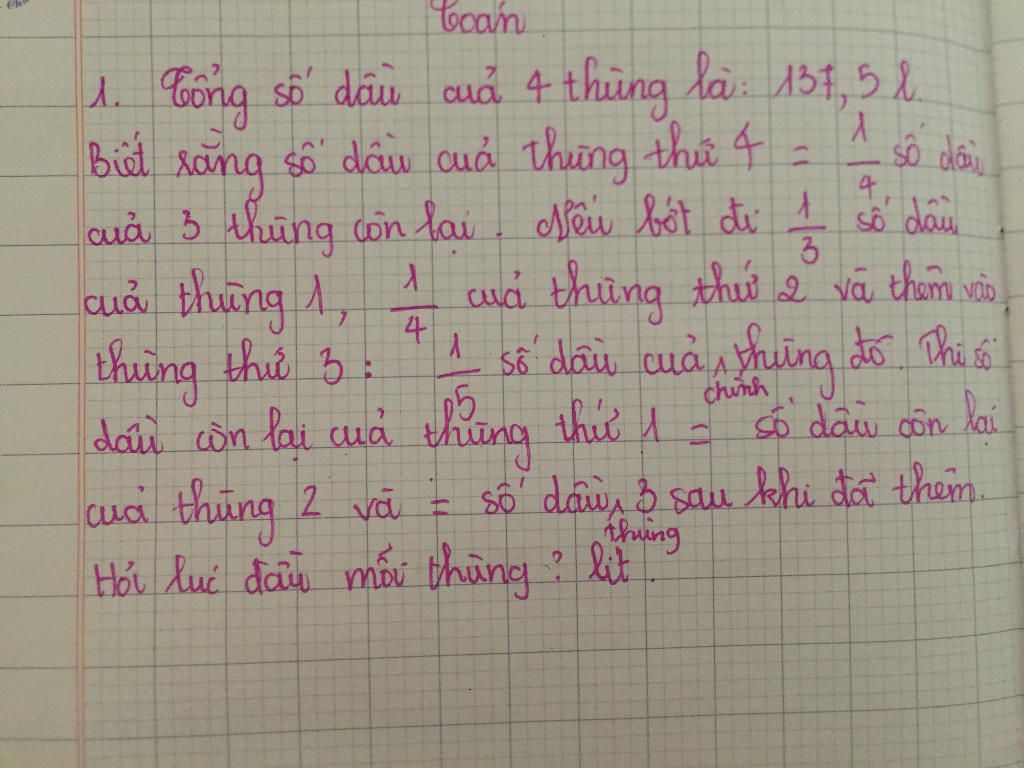 Toán
1. Tổng số dầu cuả 4 thùng là: 137,5 l.
Biết rằng số dầu cuả thùng thứ 4 = 1/4 số dầu
cuả 3 thùng còn lại. Nếu bớt đi 1/3 số dầu
cuả thùng 1, 1/4 cuả thùng thứ 2 và thêm vào
thùng thứ 3: 1/5 số dầu cuả chính thùng đó. Thì số
dầu còn lại cuả thùng thứ 1 = số dầu còn lại
cuả thùng 2 và = số dầu thùng 3 sau khi đã thêm.
Hỏi lúc đầu mỗi thùng ? lit.